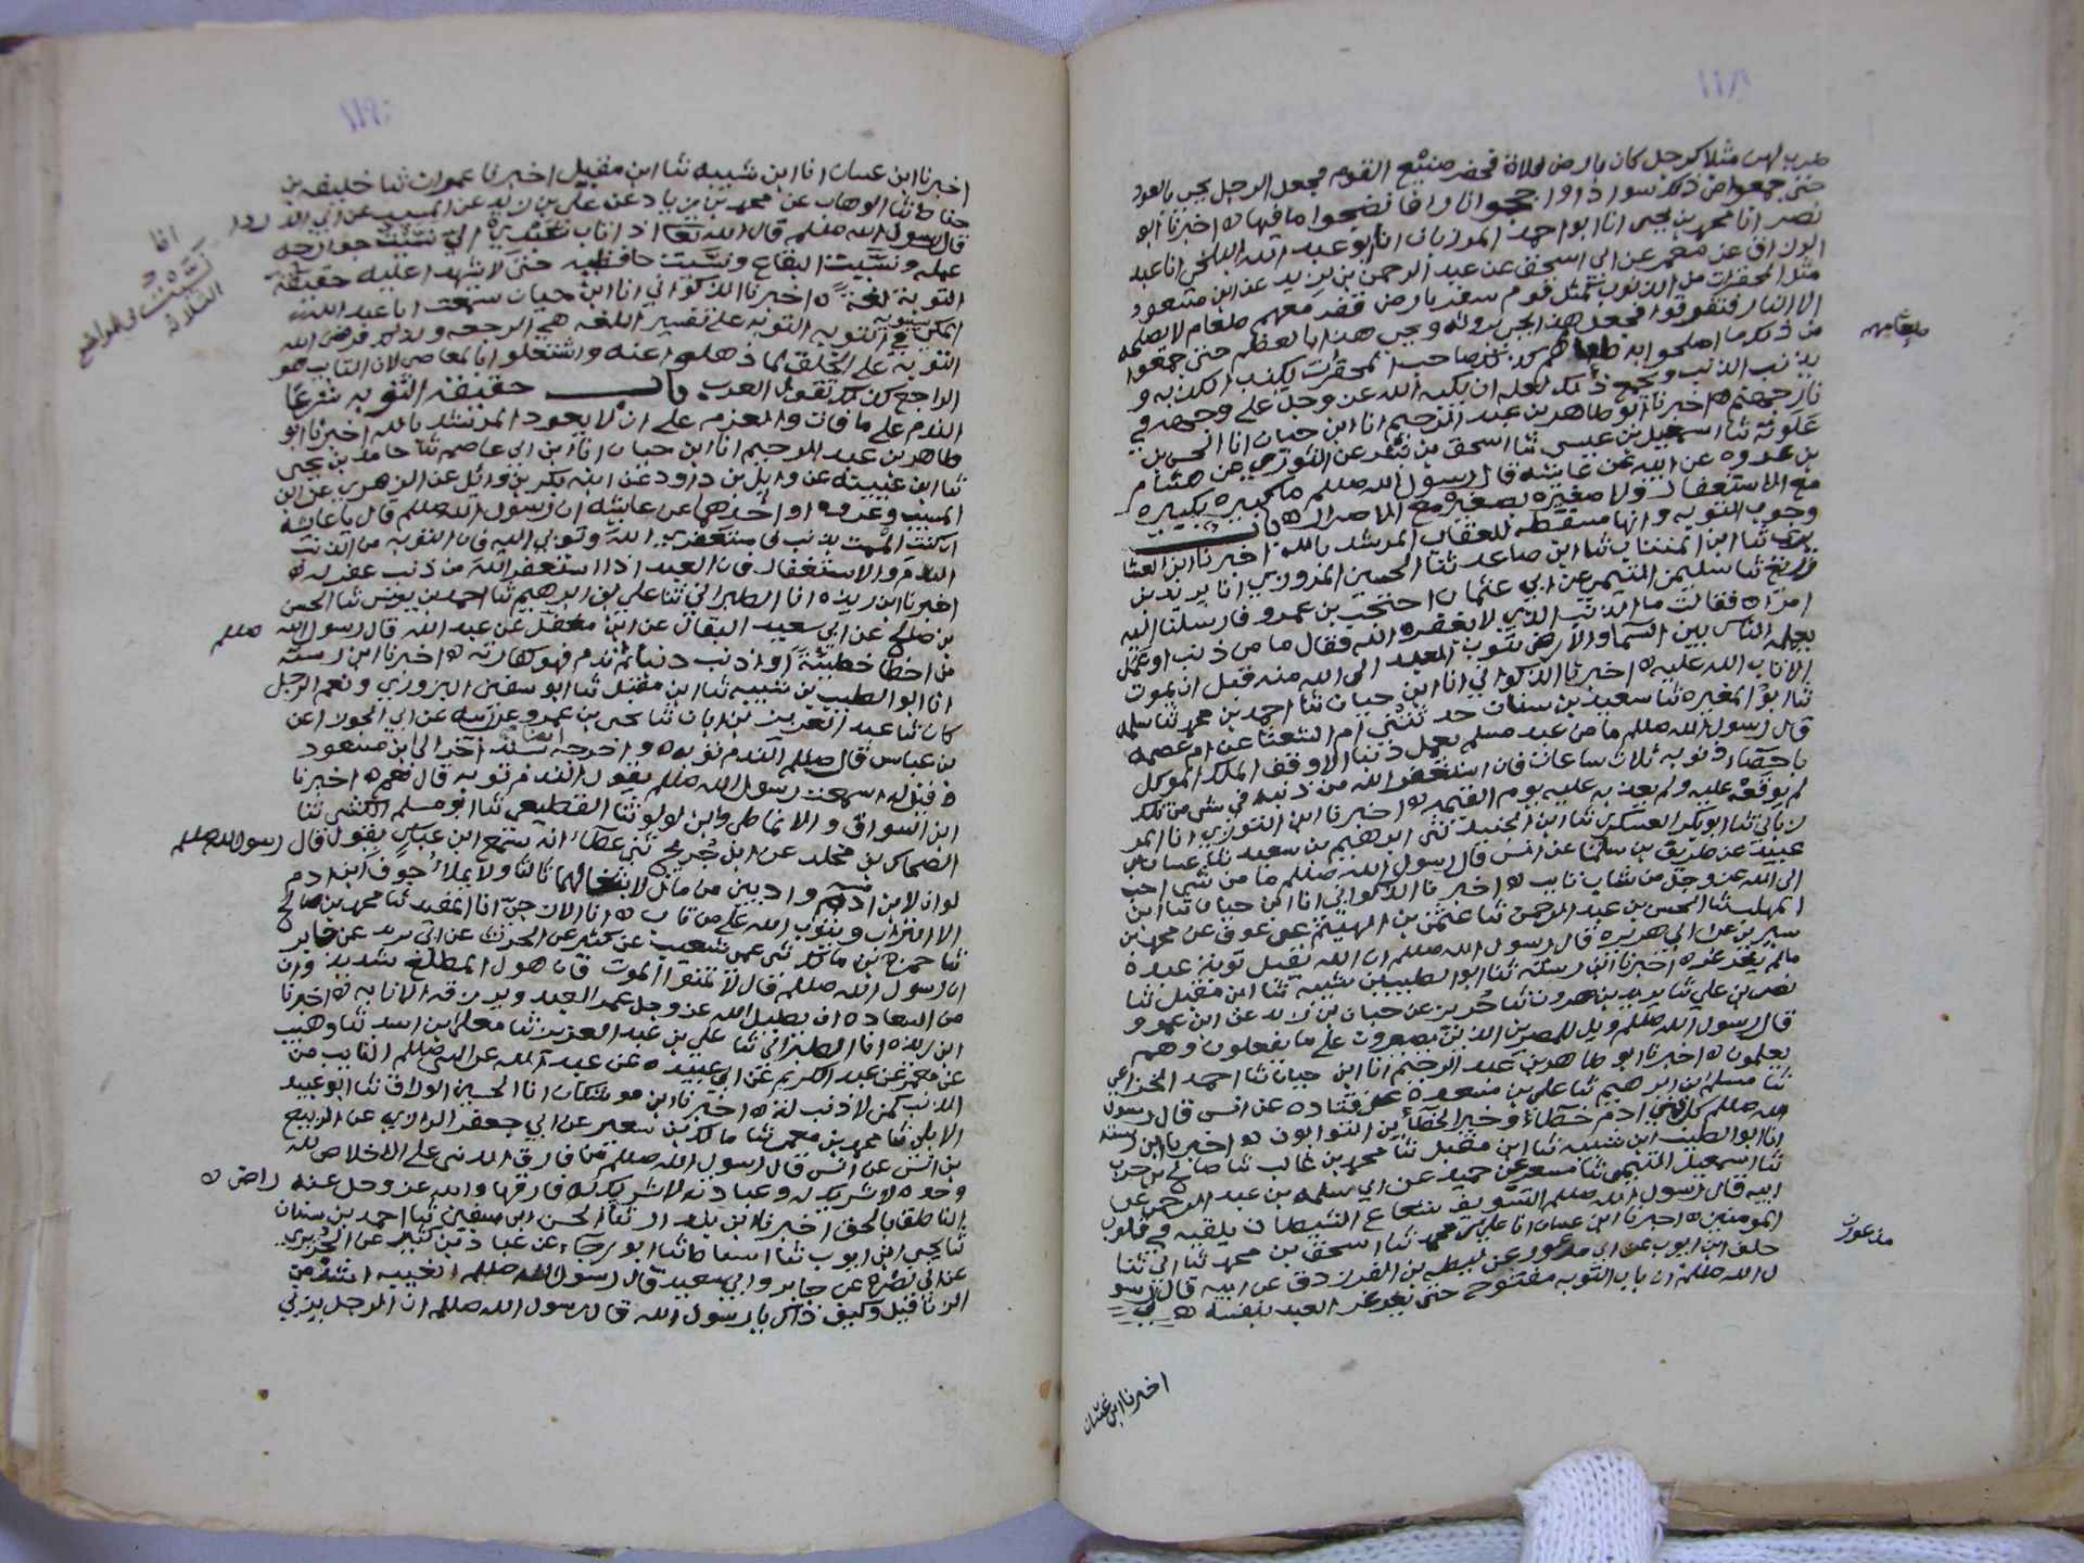 ١١٨
ضرب لهن مثلا كرجل كان بارض فلاة فحضر صنيع القوم فجعل الرجل يجي بالعود
حتى جمعوا من ذلك سوادا واججوا نارا فانضجوا ما فيها ه اخبرنا ابو
نصر انا محمد بن يحيى انا ابو احمد المرزبان انا ابو عبد الله البلخي انا عبد
الرزاق عن معمر عن ابي اسحق عن عبد الرحمن بن يزيد عن ابن مسعود
مثل المحقرات من الذنوب كمثل قوم سفر بارض قفر معهم طعام لا يصلحه
الا النار فتفرقوا فجعل هذا يجي بروثه ويجي هذا بالعظم حتى جمعوا
من ذلك ما اصلحوا به طعامهم كذلك صاحب المحقرات يكذب الكذبه و
يذنب الذنب ويجمع ذلك لعله ان يكبه الله عز وجل على وجهه في
نار جهنم ه اخبرنا ابو طاهر بن عبد الرحيم انا ابن حيان انا الحسن بن
علويه ثنا اسمعيل بن عيسى ثنا اسحق بن بشر عن الثوري عن هشام
بن عروه عن ابيه عن عايشه قال رسول الله صللم ما كبيره بكبيره
مع الاستغفار ولا صغيره بصغيره مع الاصرار ه باب
وجوب التوبه وانها مسقطه للعقاب المرشد بالله اخبرنا ابن العشا
ري ثنا ابن المنتاب ثنا ابن صاعد ثنا الحسين المروزي انا يزيد بن
زريع ثنا سليمن التيمي عن ابي عثمان احتجب بن عمرو فارسلنا اليه
امراه فقالت ما الذنب الذي لا يغفره الله فقال ما من ذنب او عمل
يعمله الناس بين السما والارض يتوب العبد الى الله منه قبل ان يموت
الا تاب الله عليه ه اخبرنا الذكواني انا ابن حيان ثنا احمد بن محمد ثنا سلمه
ثنا ابو المغيره ثنا سعيد بن سنان حدثتني ام الشعثا عن ام عصمه
قال رسول الله صللم ما من عبد مسلم يعمل ذنبا الا وقف الملك الموكل
باحصاء ذنوبه ثلاث ساعات فان استغفر الله من ذنبه في شي من تلك
لم يوقفه عليه ولم يعذبه عليه يوم القيمه ه اخبرنا ابن التوزي انا المر
زباني ثنا ابو بكر العسكري ثنا ابن الجنيد ثنى ابرهيم بن سعيد ثنا غسان بن
عبيد عن طريف بن سلمان عن انس قال رسول الله صللم ما من شي احب
الى الله عز وجل من شاب تايب ه اخبرنا الذكواني انا ابن حيان ثنا ابن
المهلب ثنا الحسن بن عبد الرحمن ثنا عثمن بن الهيثم عن عوف عن محمد بن
سيرين عن ابي هريره قال رسول الله صللم ان الله يقبل توبة عبده
ما لم يغرغر ه اخبرنا ابن رسته ثنا ابو الطيب ابن شيبه ثنا ابن مقبل ثنا
نصر بن علي ثنا يزيد بن هرون ثنا حريز عن حبان بن زيد عن ابن عمرو
قال رسول الله صللم ويل للمصرين الذين يصرون على ما يفعلون وهم
يعلمون ه اخبرنا ابو طاهر بن عبد الرحيم انا ابن حيان ثنا احمد الخزاعي
ثنا مسلم بن ابرهيم ثنا علي بن مسعده عن قتاده عن انس قال رسول
الله صللم كل بني ادم خطاء وخير الخطائين التوابون ه اخبرنا ابن رسته
انا ابو الطيب ابن شيبه ثنا ابن مقبل ثنا محمد بن غالب ثنا صالح بن حرب
ثنا اسمعيل التيمي ثنا مسعر عن حميد عن ابي سلمه بن عبد الرحمن عن
ابيه قال رسول الله صللم التسويف شعاع الشيطان يلقيه في قلوب
المومنين ه اخبرنا ابن غسان انا علي بن محمد ثنا اسحق بن محمد ثنا ابي ثنا
خلف ابن ايوب عن ابي مدعور عن لبطه بن الفرزدق عن ابيه قال رسو
ل الله صللم ان باب التوبه مفتوح حتى يغرغر العبد بنفسه ه
طعامهم
مذعور
اخبرنا ابن غسان
١١٩
اخبرنا ابن غسان انا ابن شيبه ثنا ابن مقبل اخبرنا عمران ثنا خليفه بن
خياط ثنا الوهاب عن محمد بن زياد عن علي بن زيد عن المسيب عن ابي الدردا
قال رسول الله صللم قال الله تعا اذا تاب عبدي الي نسيت جوارحه
عمله ونسيت البقاع ونسيت حافظيه حتى لا يشهدا عليه حقيقة
التوبة لغة ه اخبرنا الذكواني انا ابن حيان سمعت ابا عبد الله
المكي في التوبه التوبه على تفسير اللغه هي الرجعه ولذلك فرض الله
التوبه على الخلق لما ذهلوا عنه واشتغلوا بالمعاصي لان التايب هو
الراجع كذلك تقول العرب باب حقيقه التوبه شرعا
الندم على ما فات والعزم على ان لا يعود المرشد بالله اخبرنا ابو
طاهر بن عبد الرحيم انا ابن حيان انا ابن ابي عاصم ثنا حامد بن يحيى
ثنا ابن عيينه عن وايل بن داود عن ابنه بكر بن وائل عن الزهري عن ابن
المسيب وعروه او احدهما عن عايشه ان رسول الله صللم قال يا عائشة
ان كنت الممت بذنب فاستغفري الله وتوبي اليه فان التوبه من الذنب
الندم والاستغفار فان العبد اذا استغفر الله من ذنب غفر له ه
اخبرنا ابن ريذه انا الطبراني ثنا علي بن ابرهيم ثنا احمد بن يونس ثنا الحسن
بن صالح عن ابي سعيد البقال عن ابن مغفل عن عبد الله قال رسول الله صللم
من اخطأ خطيئة او اذنب ذنبا ثم ندم فهو كفارته ه اخبرنا ابن رسته
انا ابو الطيب بن شيبه ثنا ابن مقبل ثنا ابو سفين البزوري ونعم الرجل
كان ثنا عبد العزيز بن ابان ثنا يحيى بن عمرو عن ابيه عن ابي الجوزا عن
بن عباس قال صللم الندم توبه ه واخرجه ايضا بسند آخر الى ابن مسعود
فقيل له اسمعت رسول الله صللم يقول الندم توبه قال نعم ه اخبرنا
ابن السواق والانماطي وابن لولو ثنا القطيعي ثنا ابو مسلم الكشي ثنا
الضحاك بن مخلد عن ابن جريج ثنى عطاء انه سمع ابن عباس يقول قال رسول الله صللم
لو ان لابن ادم واديين من مال لابتغا لهما ثالثا ولا يملأ جوف ابن ادم
الا التراب ويتوب الله على من تاب ه انا الازجي انا المفيد ثنا محمد بن صالح
ثنا حمزه بن مالك ثنى عمي شعيب عن كثير عن الحرث عن ابي يزيد عن جابر
ان رسول الله صللم قال لا تمنوا الموت فان هول المطلع شديد وان
من السعاده ان يطيل الله عز وجل عمر العبد ويرزقه الانابه ه اخبرنا
ابن ريذه انا الطبراني ثنا علي بن عبد العزيز ثنا معلى ابن اسد ثنا وهيب
عن معمر عن عبد الكريم عن ابي عبيده عن عبد الله عن النبي صللم التايب من
الذنب كمن لا ذنب له ه اخبرنا ابن موشكان انا الحسين الوراق ثنا ابو عبيد
الابلي ثنا محمد بن معمر ثنا مالك بن سعير عن ابي جعفر الرازي عن الربيع
بن انس عن انس قال رسول الله صللم من فارق الدنيا على الاخلاص لله
وحده لا شريك له وعبادته لا شريك له فارقها والله عز وجل عنه راض ه
الناطق بالحق اخبرنا ابن بندار ثنا الحسن ابن سفين ثنا احمد بن سنان
ثنا يحيى ابن ايوب ثنا اسباط ثنا ابو رجاء عن عباد بن كثير عن الجريري
عن ابي نضره عن جابر وابي سعيد قال رسول الله صللم الغيبه اشد من
الزنا قيل وكيف ذاك يا رسول الله قال رسول الله صللم ان الرجل يزني
انا
نسيت في المواضع
الثلاثه